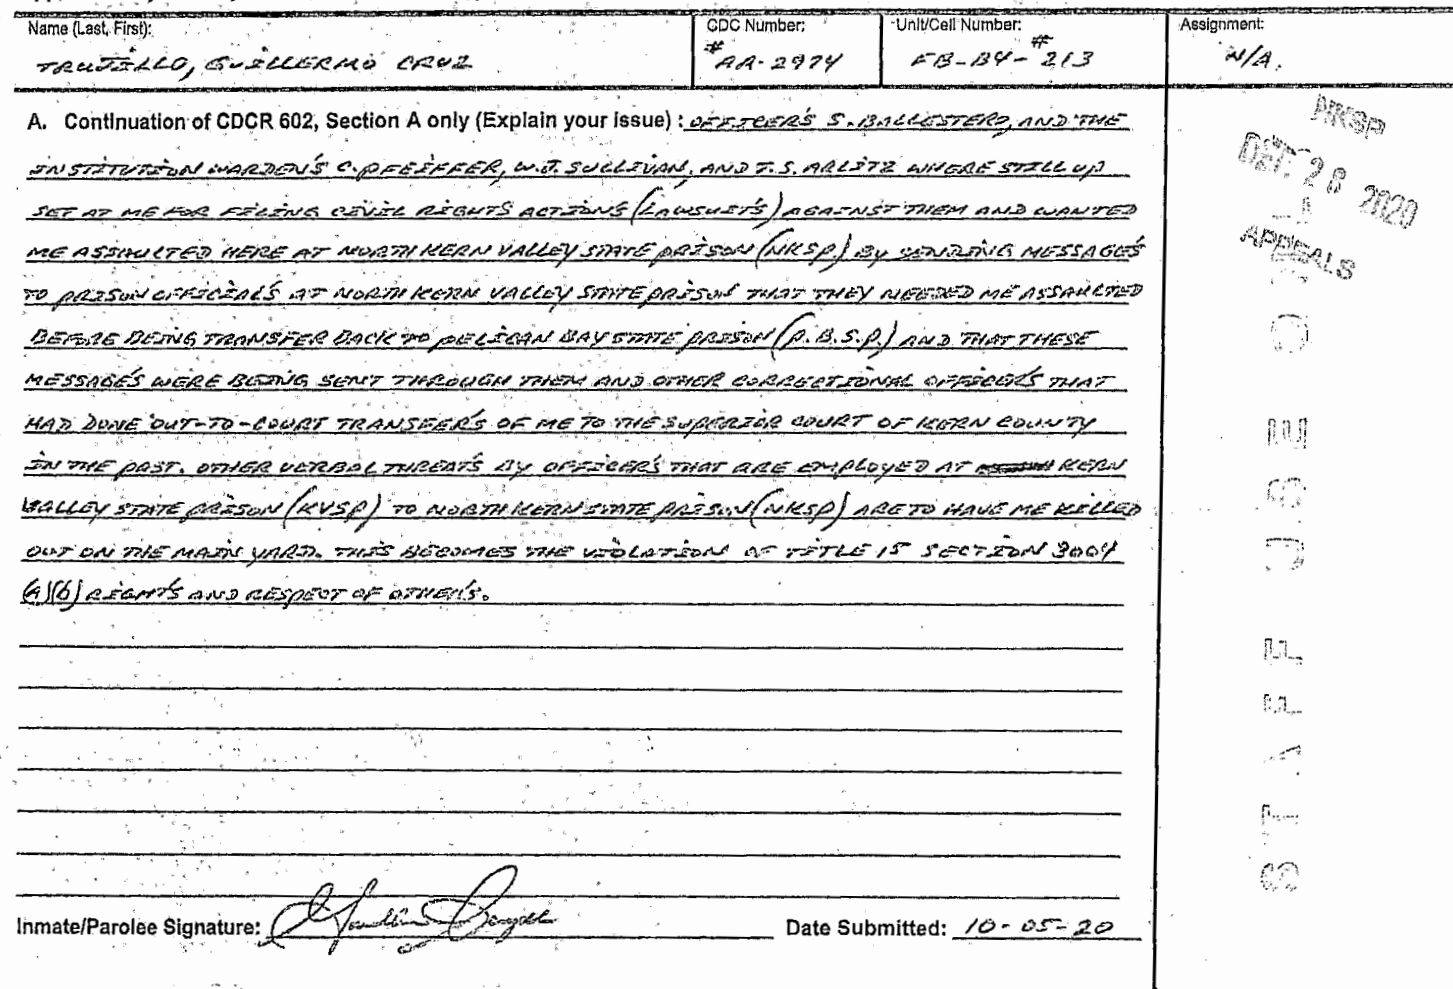 Name (Last, First):
TRUJILLO, GUILLERMO CRUZ
CDC Number:
#AA-2974
Unit/Cell Number:
FB-B4-#213
Assignment:
N/A.
A. Continuation of CDCR 602, Section A only (Explain your issue) : OFFICER'S S. BALLESTERO, AND THE
INSTITUTION WARDEN'S C. PFEIFFER, W.J. SULLIVAN, AND T.S. ARLITZ WHERE STILL UP
SET AT ME FOR FILING CIVIL RIGHTS ACTION'S (LAWSUIT'S) AGAINST THEM AND WANTED
ME ASSAULTED HERE AT NORTH KERN VALLEY STATE PRISON (NKSP.) BY SENDING MESSAGE'S
TO PRISON OFFICIAL'S AT NORTH KERN VALLEY STATE PRISON THAT THEY NEEDED ME ASSAULTED
BEFORE BEING TRANSFER BACK TO PELICAN BAY STATE PRISON (P.B.S.P.) AND THAT THESE
MESSAGE'S WERE BEING SENT THROUGH THEM AND OTHER CORRECTIONAL OFFICER'S THAT
HAD DONE OUT-TO-COURT TRANSFER'S OF ME TO THE SUPERIOR COURT OF KERN COUNTY
IN THE PAST. OTHER VERBAL THREAT'S BY OFFICER'S THAT ARE EMPLOYED AT KERN
VALLEY STATE PRISON (KVSP) TO NORTH KERN STATE PRISON (NKSP) ARE TO HAVE ME KILLED
OUT ON THE MAIN YARD. THIS BECOMES THE VIOLATION OF TITLE 15 SECTION 3004
(A)(B) RIGHT'S AND RESPECT OF OTHER'S.
NKSP
DEC 28 2020
APPEALS
STAFF USE ONLY
Inmate/Parolee Signature:
Date Submitted: 10-05-20